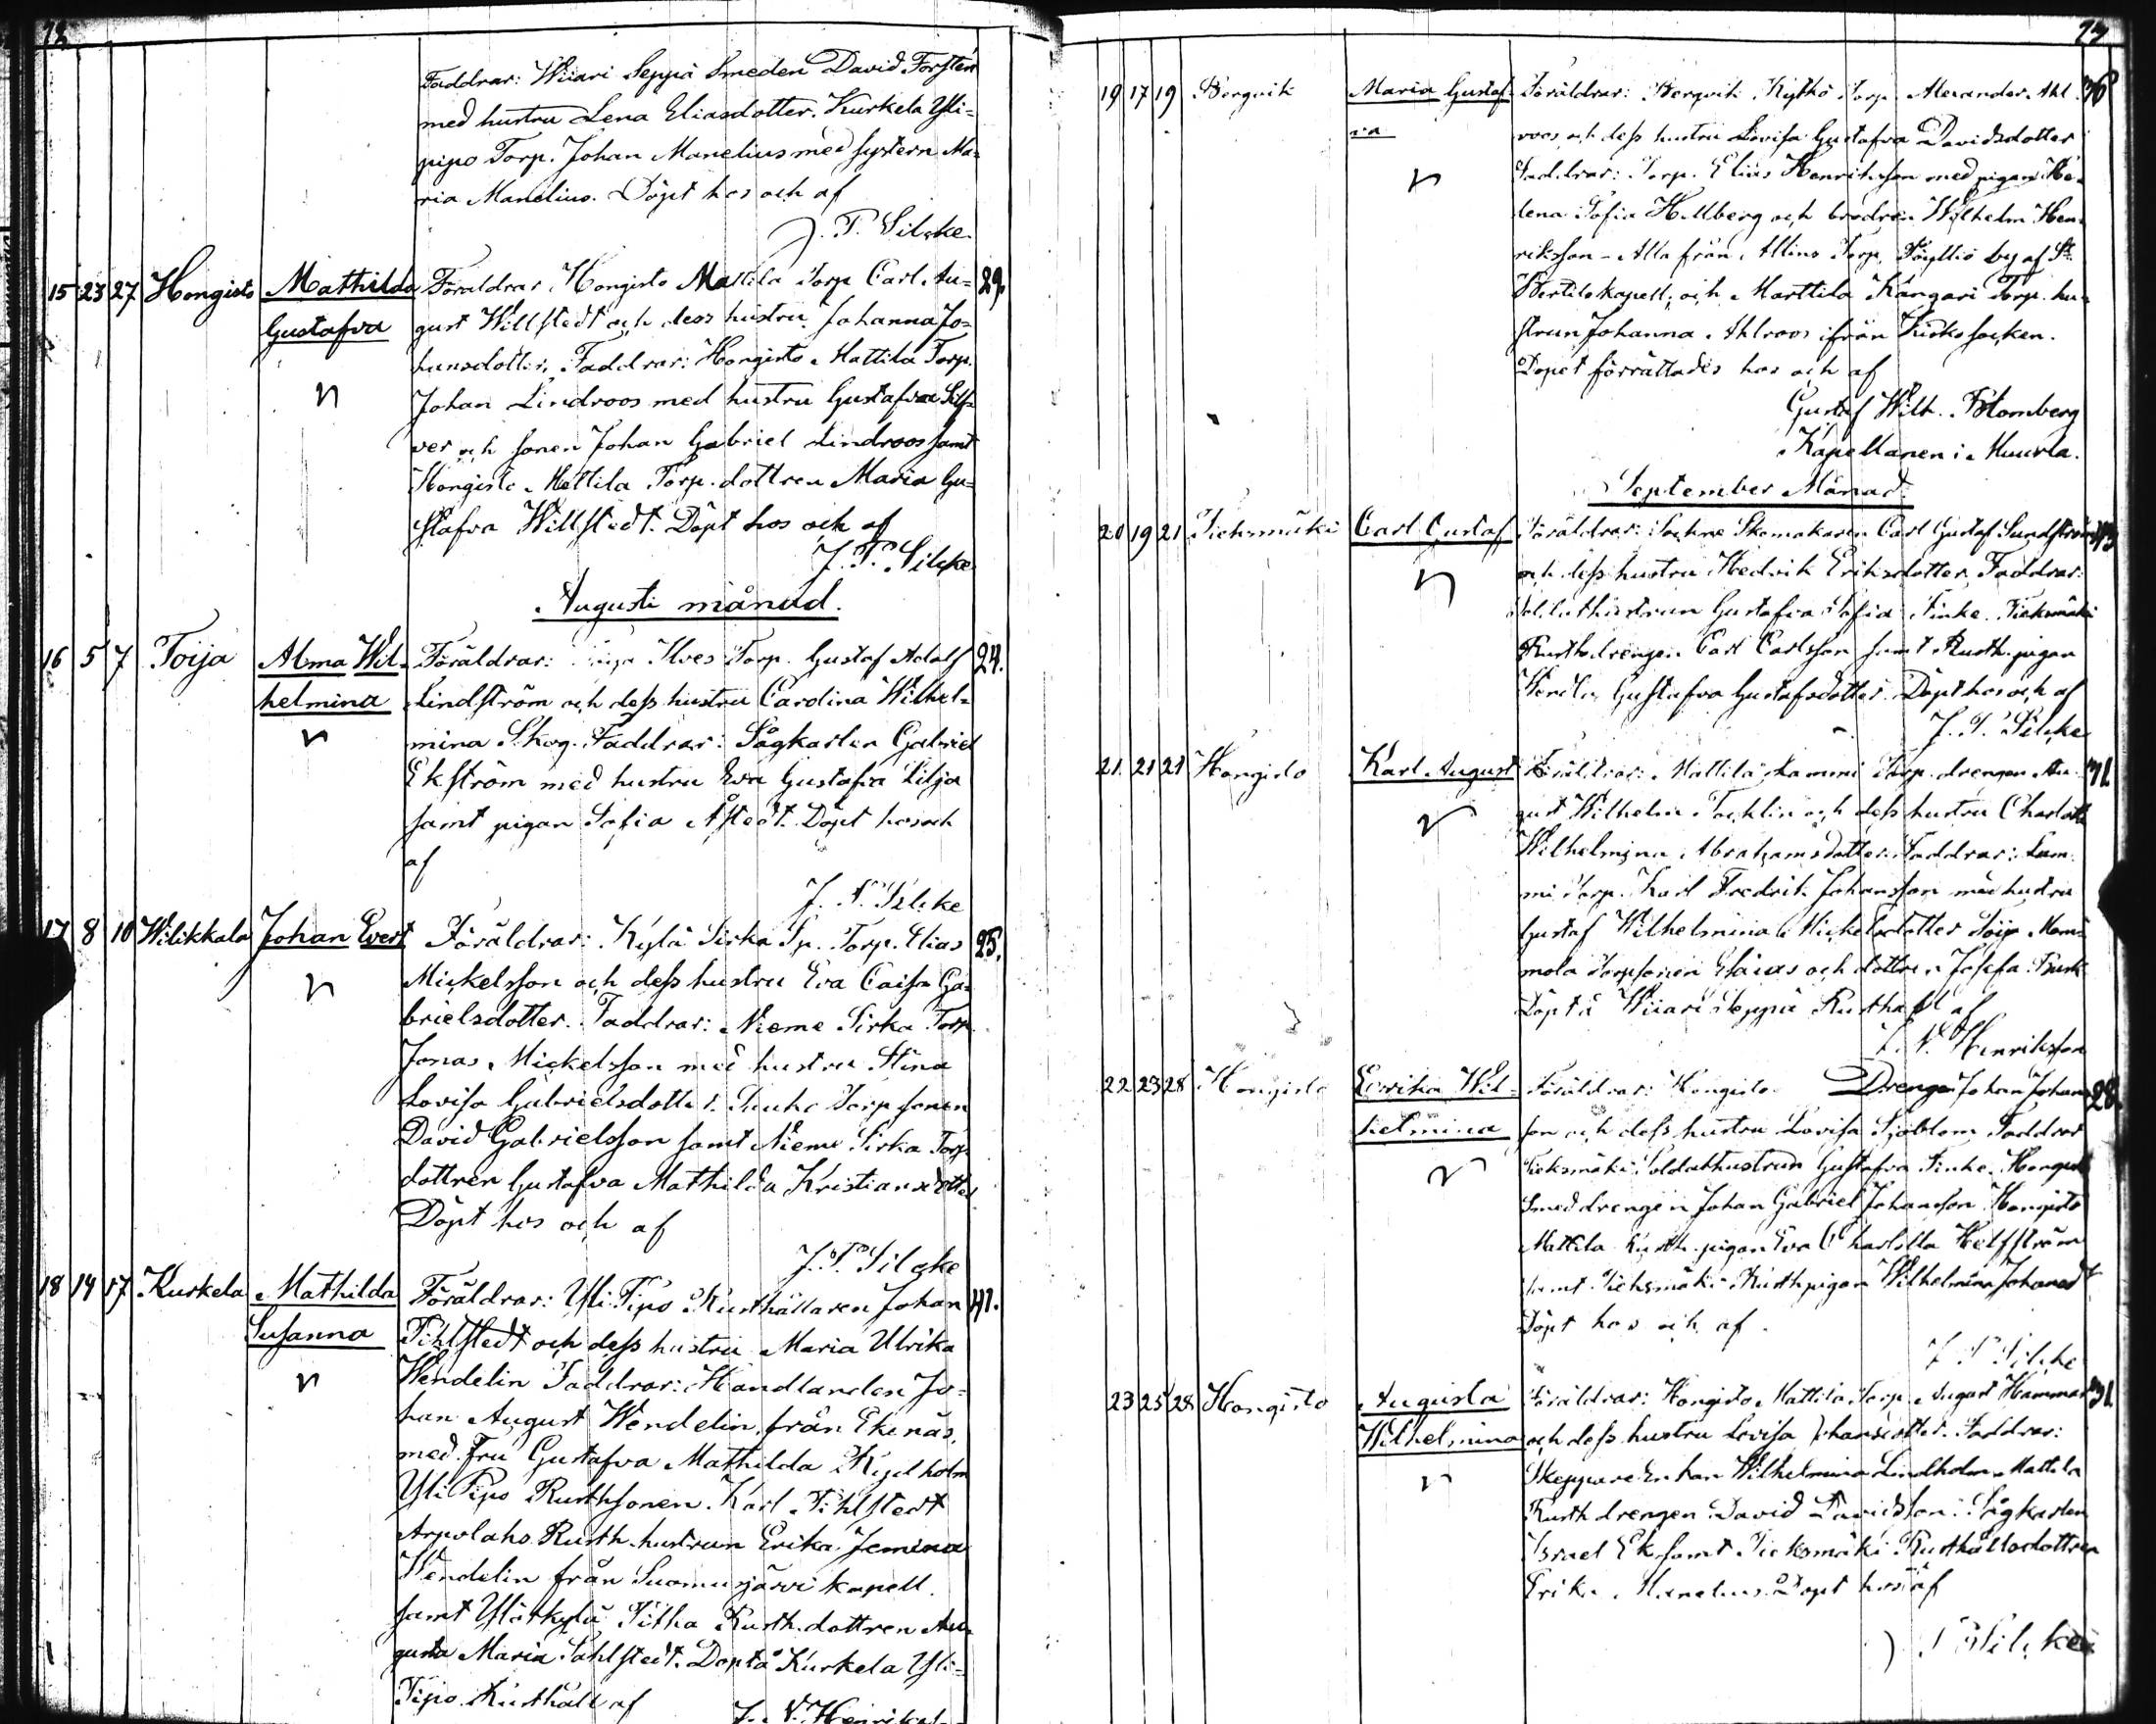 78
Faddrar: Wiiari Seppä Smeden David Forstén
med hustru Lena Eliasdotter. Kurkela Yli=
pipo Torp. Johan Manelius med system Ma=
ria Manelius. Döpt hos och af
J. T. Silcke.
15 23 27 Hongisto Mathilda Föräldrar Hongisto Mattila Torp Carl Au= 29.
Gustafva gust Willstedt och dess hustru Johanna Jo=
hansdotter, Faddrar: Hongisto Mattila Torp.
Johan Lindroos med hustru Gustafva Silf=
ver och sonen Johan Gabriel Lindroos samt
Hongisto Mattila Torp. dottren Maria Gu=
stafva Willstedt. Döpt hos och af
J. T. Silcke
Augusti månad.
16 5 7 Toija Alma Wil= Föräldrar: Toija Ilves Torp. Gustaf Adolf 24.
helmina Lindström och dess hustru Carolina Wilhel=
mina Skog. Faddrar: Sågkarlen Gabriel
Ekström med hustru Eva Gustafva Lilja
samt pigan Sofia Åstedt. Döpt hos och
af
J. T. Silcke
17 8 10 Wilikkala Johan Evert Föräldrar: Kylä Sirka Sp. Torp. Elias 25.
Mickelsson och dess hustru Eva Caisa Ga=
brielsdotter. Faddrar: Nieme Sirka Torp.
Jonas Mickelsson med hustru Stina
Lovisa Gabrielsdotter. Torp sonen
David Gabrielsson samt Nieme Sirka Torp
dottren Gustafva Mathilda Kristiansdotter
Döpt hos och af
J. T. Silcke
18 14 17 Kurkela Mathilda Föräldrar: Yli Pipo Rusthållaren Johan 41.
Susanna Fihlstedt och dess hustru Maria Ulrika
Wendelin Faddrar: Handlanden Jo=
han August Wendelin från Ekenäs,
med Fru Gustafva Mathilda
Yli Pipo Rusthsonen Karl Fihlstedt
Arpolahs Rusth. hustrun Erika Jemina
Wendelin från Suomusjärvi kapell.
samt Yliskylä Pitha Rusth. dottren Au=
gusta Maria Sahlstedt. Döpt å Kurkela Yli=
Pipo Rusthåll af J. V. Henriks
79
19 17 19 Bergvik Maria Gustaf= Föräldrar: Bergvik Kytkö Torp. Alexander Ahl= 36
va roos och dess hustru Lovisa Gustafva Davidsdotter
Faddrar: Torp. Elias Henriksson med pigan He=
lena Sofia Hellberg och brodren Wilhelm Hen=
riksson - Alla från Torp, by af St.
Bertils kapell; och Marttila Kangari Torp. hu=
strun Johanna Ahlroos ifrån Kisko socken.
Dopet förrättades hos och af
Gustaf Wilh. Blomberg
Kapellanen i Muurla.
September Månad.
20 19 21 Tieksmäki Carl Gustaf Föräldrar: Sockne Skomakaren Carl Gustaf Sundström
och dess hustru Hedvik Eriksdotter, Faddrar:
Soldathustrun Gustafva Sofia Finke. Tieksmäki
Rusth.drengen Carl Carlsson samt Rusth.pigan
Gustafva Gustafsdotter. Döpt hos och af
J. T. Silcke
21. 21 21 Hongisto Karl August Föräldrar: Mattila Lammi Torp. drengen Au= 31.
gust Wilhelm och dess hustru Charlotta
Wilhelmina Abrahamsdotter. Faddrar: Lam=
mi Torp. Karl Fredrik Johansson med hustru
Gustaf Wilhelmina Mickelsdotter Toija Mom=
mola Torpsonen Esaias och dottren Josefa
Döpt å Wiiari Seppä Rusthåll af
J. V. Henriksson
22 23 28 Hongisto Erika Wil= Föräldrar: Hongisto Drengen Johan Johans= 28.
helmina son och dess hustru Lovisa Sjöblom Faddrar
Tieksmäki Soldathustrun Gustafva Finke. Hongisto
Smeddrengen Johan Gabriel Johansson Hongisto
Mattila Rusth. pigan Eva Charlotta Helfström
samt Tieksmäki Rusthpigan Wilhelmina Johansd:r
Döpt hos och af.
J. T. Silcke
23 25 28 Hongisto Augusta Föräldrar: Hongisto Mattila Torp. August Hammar 31.
Wilhelmina och dess hustru Lovisa Johansdotter. Faddrar:
Skeppare Enkan Wilhelmina Lindholm Mattila
Rusth drengen David Davidsson. Sågkarlen
Israel Ek samt Tieksmäki Rusthållsdottren
Erika Manelius. Döpt hos af
J. T. Silcke